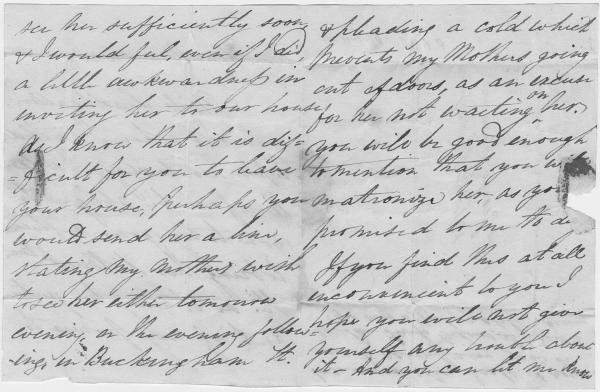 see her sufficiently soon
& I would feel, even if I did,
a little awkwardness in
inviting her to our house
As I know that it is dif=
=ficult for you to leave
your house, perhaps you
would send her a line,
stating my mothers wish
to see her either tomorrow
evening, or the evening follow=
=ing, in Buckingham St.
& pleading a cold which
prevents my Mothers going
out of doors, as an excuse
for her not waiting on her.
you will be good enough
to mention that you will
matronize her, as you
promised to me to do
If you find this at all
inconvenient to you I
hope you will not give
yourself any trouble about
it - And you can let me know